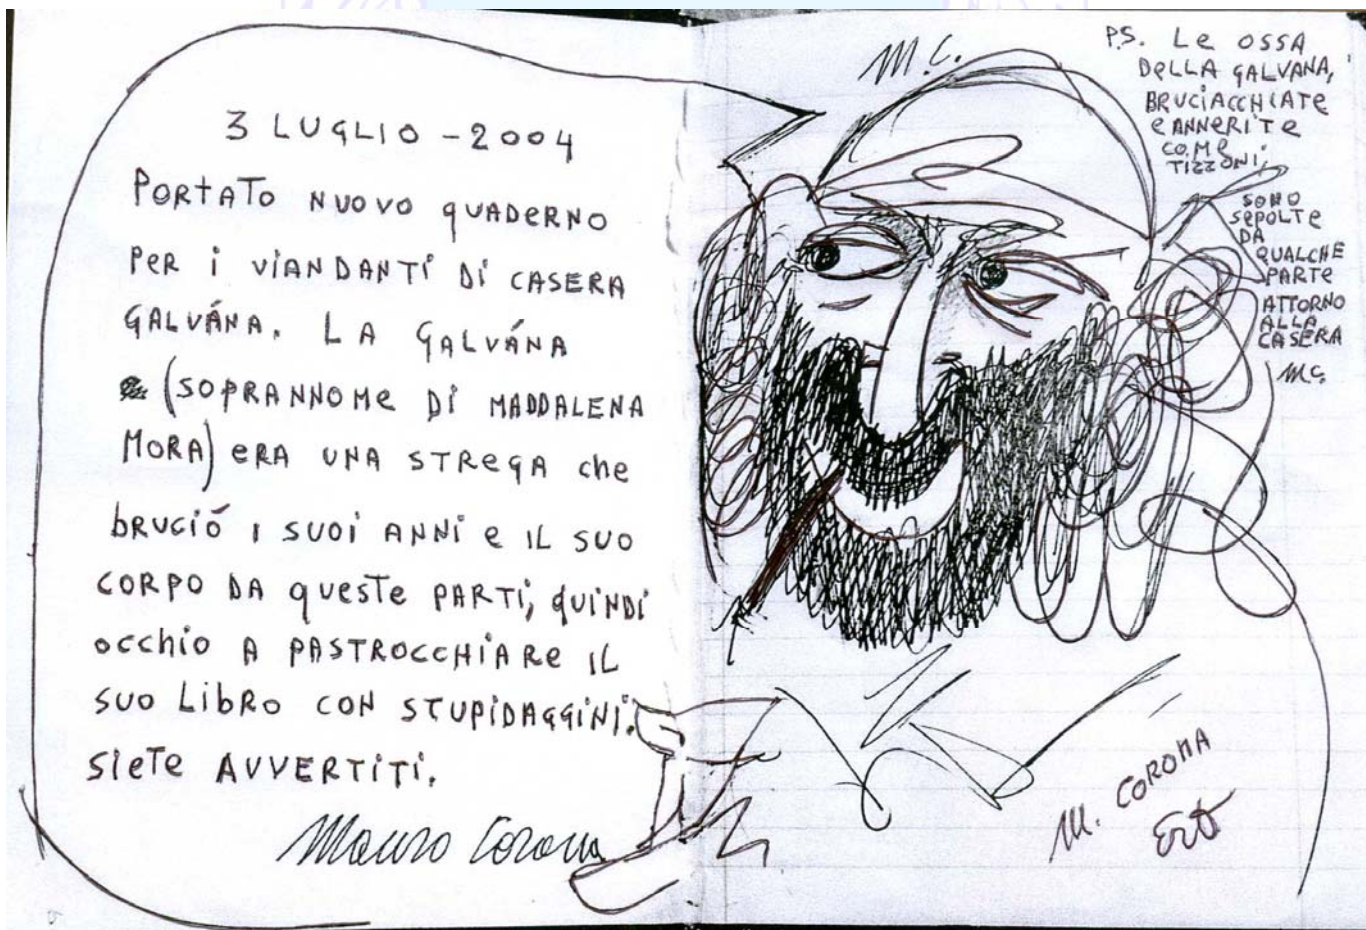 3 LUGLIO - 2004
PORTATO NUOVO QUADERNO
PER I VIANDANTI DI CASERA
GALVÁNA. LA GALVÁNA
(SOPRANNOME DI MADDALENA
MORA) ERA UNA STREGA che
bRUCIÓ I SUOI ANNI e IL SUO
CORPO DA queSTe PARTI, QUINDI
occhio A PASTROCCHIARE IL
SUO LIBRO CON STUPIDAGGINI.
SIETE AVVERTITI.
Mauro Corona
M.C.
P.S. Le OSSA
DeLLA GALVANA,
BRUCIACCHIATE
e ANNERITE
COMe
TIZZONI,
SONO
SEPOLTE
DA
QUALCHE
PARTE
ATTORNO
ALLA
CASERA
M.C.
M. CORONA
Erto